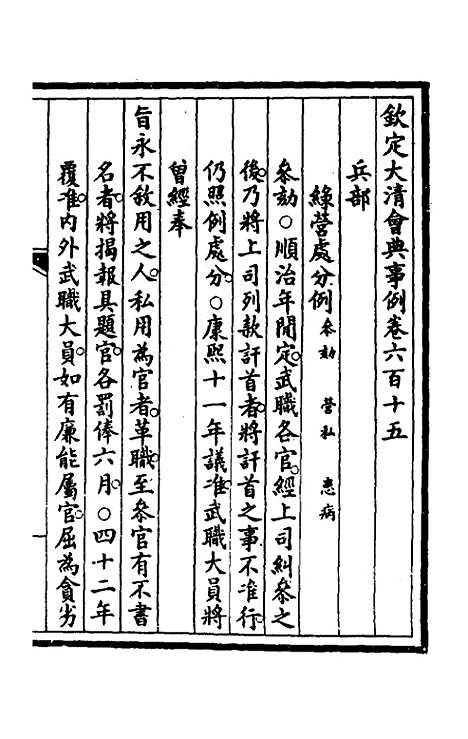 欽定大清會典事例卷六百十五
兵部
綠營處分例 參劾 營私 患病
參劾○順治年閒定武職各官經上司糾參之
後乃將上司列款訐首者將訐首之事不准行
仍照例處分○康熙十一年議准武職大員將
曾經奉
旨永不敘用之人私用為官者革職至參官有不書
名者將揭報具題官各罰俸六月○四十二年
覆准內外武職大員如有廉能屬官屈為貪劣
一